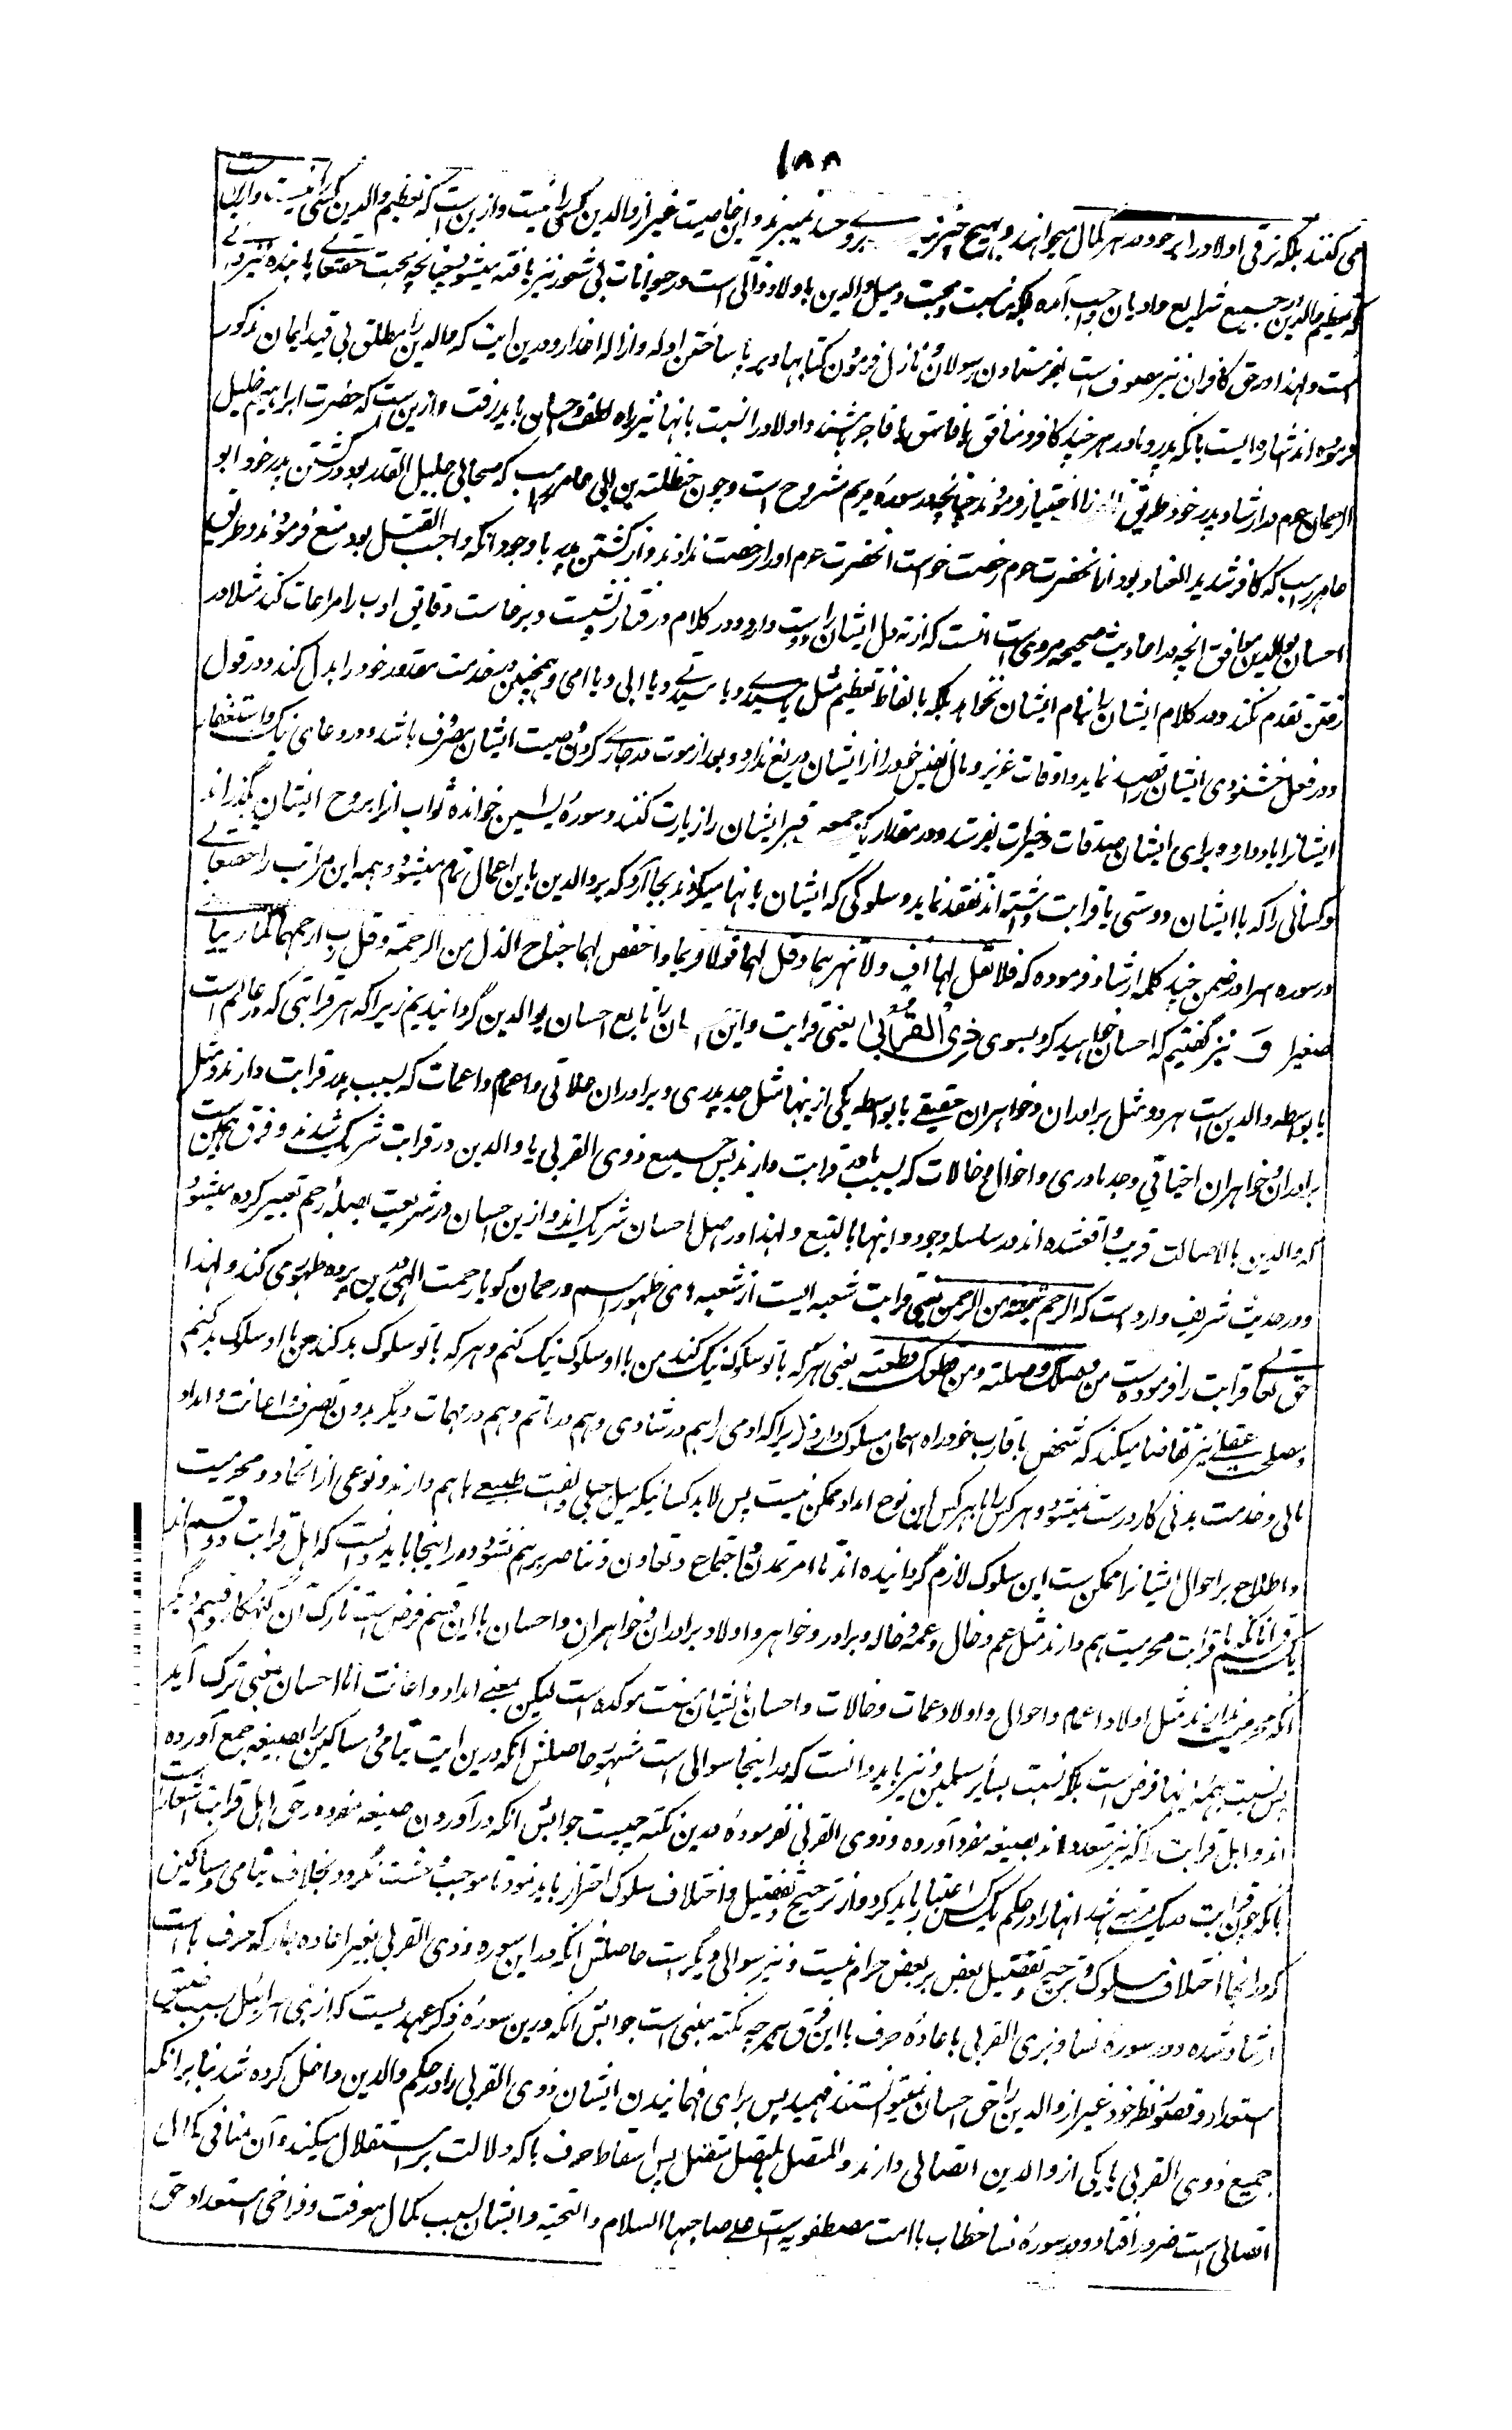 ۱۸۸
می کنند بلکه ترقی اولاد را بر خود در هر کمال میخواهند و بهیچ چیز بروی حسد نمیبرند و این خاصیت غیر از والدین کسی را نیست و ازین است که تعظیم والدین
که تعظیم والدین در جمیع شرایع و ادیان واجب آمده بلکه مناسبت و محبت و میل والدین باولاد ذاتی است در حیوانات بی شعور نیز یافته میشود چنانچه محبت حقتعالی با بنده نیز
است و لهذا در حق کافران نیز مصروف است بفرستادن رسولان و نازل فرمودن کتابها و برپا ساختن ادله و ازاله اعذار و درین آیت که والدین را مطلق بی قید ایمان مذکور
فرموده اند اشاره ایست بانکه پدر و مادر هر چند کافر و منافق یا فاسق یا فاجر باشند و اولاد را نسبت بانها نیز راه لطف و احسان باید رفت و ازین است که حضرت ابراهیم خلیل
الرحمان ع م در ارشاد پدر خود طریق اختیار فرموند چنانچه در سوره مریم مشروح است و چون حنظلته بن ابی عامر راهب که صحابی جلیل القدر بود در کشتن پدر خود ابو
عامر راهب که کافر شدید العناد بود از آنحضرت صوم رخصت خواست انحضرت صوم او را رخصت ندادند و از کشتن پدر باوجود انکه واجب القتل بود منع فرموند و طریق
احسان بوالدین موافق انچه در احادیث صحیحه مروی است انست که از ته دل ایشان را دوست دارد و در کلام و رفتار و نشست و برخاست دقایق ادب را مراعات کند مثلا در
رفتن تقدم نکند و در کلام ایشان را بنام ایشان نخواند بلکه بالفاظ تعظیم مثل یا سیدی و یا سیدتی و یا ابی و یا امی و همچنین در خدمت مقدور خود را بدل کند و در قول
و در فعل خوشنودی ایشان را قصد نماید و اوقات عزیز و مال نفیس خود را از ایشان دریغ ندارد و بعد از موت در جاری کردن وصیت ایشان مصروف باشد و در دعای نیک و استغفار
ایشانرا یاد دارد و برای ایشان صدقات و خیرات بفرستد و در مقدار یک جمعه قبر ایشان را زیارت کنند و سورهٔ یٰسین خوانده ثواب انرا بروح ایشان بگذراند
و کسانی را که با ایشان دوستی یا قرابت داشته اند تفقد نماید و سلوکی که ایشان بانها میکردند بجا آرد که بر والدین باین اعمال تمام میشود و همه این مراتب را حقتعالی
در سوره اسرا در ضمن چند کلمه ارشاد فرموده که فلا تقل لهما اف ولا تنهرهما و قل لهما قولا کریما و اخفض لهما جناح الذل من الرحمة و قل رب ارحمهما کما ربیانی
صغیرا وَ نیز گفتیم که احسان خواهید کرد بسوی ذِی الْقُرْبیٰ یعنی قرابت و این را تابع احسان بوالدین گردانیدیم زیرا که هر قرابتی که در عالم است
یا بواسطه والدین است هر دو مثل برادران و خواهران حقیقی یا بواسطه یکی ازینها مثل جد پدری و برادران علاتی و اعمام و اعمات که بسبب پدر قرابت دارند و مثل
برادران و خواهران اخیافی و جد مادری و اخوال و خالات که بسبب مادر قرابت دارند پس جمیع ذوی القربی با والدین در قرابت شریک شدند و فرق همین است
که والدین بالاصالت قریب واقع شده اند در سلسله وجود و اینها بالتبع و لهذا در اصل احسان شریک اند و ازین احسان در شریعت بصله رحم تعبیر کرده میشود
و در حدیث شریف وارد است که الرحم شجنة من الرحمن یعنی قرابت شعبه ایست از شعبه های ظهور اسم رحمان گویا رحمت الهی درین پرده ظهور می کند و لهذا
حق تعالی قرابت را فرموده است من وصلک وصلته و من قطعک قطعته یعنی هر که با تو سلوک نیک کند من با او سلوک نیک کنم و هر که با تو سلوک بد کند من با او سلوک بد کنم
و مصلحت عقلی نیز تقاضا میکند که شخص با قارب خود راه احسان مسلوک دارد زیرا که ادمی را هم در شادی و هم در ماتم و هم در مهمات دیگر بدون تصرف و اعانت و امداد
مالی و خدمت بدنی کار درست نمیشود و هر کس را با هر کس این نوع امداد ممکن نیست پس لابد کسانیکه میل جبلی و الفت طبیعی باهم دارند و نوعی از اتحاد و محرمیت
و اطلاع بر احوال ایشانرا ممکن ست این سلوک لازم گردانیده اند تا امر تمدن و اجتماع و تعاون و تناصر برهم نشود و در اینجا باید دانست که اهل قرابت دو قسم اند
یک قسم انانکه با قرابت محرمیت هم دارند مثل عم و خال و عمه و خاله و برادر و خواهر و اولاد برادران و خواهران و احسان با این قسم فرض است تارک آن گنهکار و قسم دیگر
انکه محرمیت ندارند مثل اولاد اعمام و احوال و اولاد عمات و خالات و احسان با ایشان سنت موکده است لیکن بمعنی امداد و اعانت اما احسان بمعنی ترک آید
پس نسبت بهمه اینها فرض است بلکه نسبت بسائر مسلمین و نیز باید دانست که در اینجا سوالی است مشهور حاصلش انکه درین ایت یتامی و مساکین را بصیغه جمع آورده
اند و اهل قرابت را که نیز متعدد اند بصیغه مفرد آورده و ذوی القربی نفرموده درین نکته چیست جوابش انکه در آوردن صیغه مفرد در حق اهل قرابت اشعار است
بانکه چون قرابت در یک مرتبه باشد انها را در حکم یک کس اعتبار باید کرد و از ترجیح و تفضیل و اختلاف سلوک احتراز باید نمود تا موجب وحشت نگردد بخلاف یتامی و مساکین
که در انجا اختلاف سلوک و ترجیح و تفضیل بعض بر بعض حرام نیست و نیز سوالی دیگر است حاصلش انکه در این سوره و ذی القربی بغیر اعاده جار که حرف با است
ارشاد شده و در سورهٔ نسا و بذی القربی با عادهٔ حرف با این فرق بر چه نکته مبنی است جوابش انکه درین سورهٔ ذکر عهدیست که از بنی اسرائیل بسبب ضیق
استعداد و قصور نظر خود غیر از والدین را حق احسان نمیتوانستند فهمید پس برای فهمانیدن ایشان ذوی القربی را در حکم والدین داخل کرده شد بنا بر انکه
جمیع ذوی القربی با یکی از والدین اتصالی دارند و المتصل بالمتصل متصل پس اسقاط حرف با که دلالت بر استقلال میکند و آن منافی کمال
اتصالی است ضرور افتاد و در سورهٔ نسا خطاب با امت مصطفویه است علی صاحبها السلام و التحیه و ایشان بسبب کمال معرفت و فراخی استعداد حق